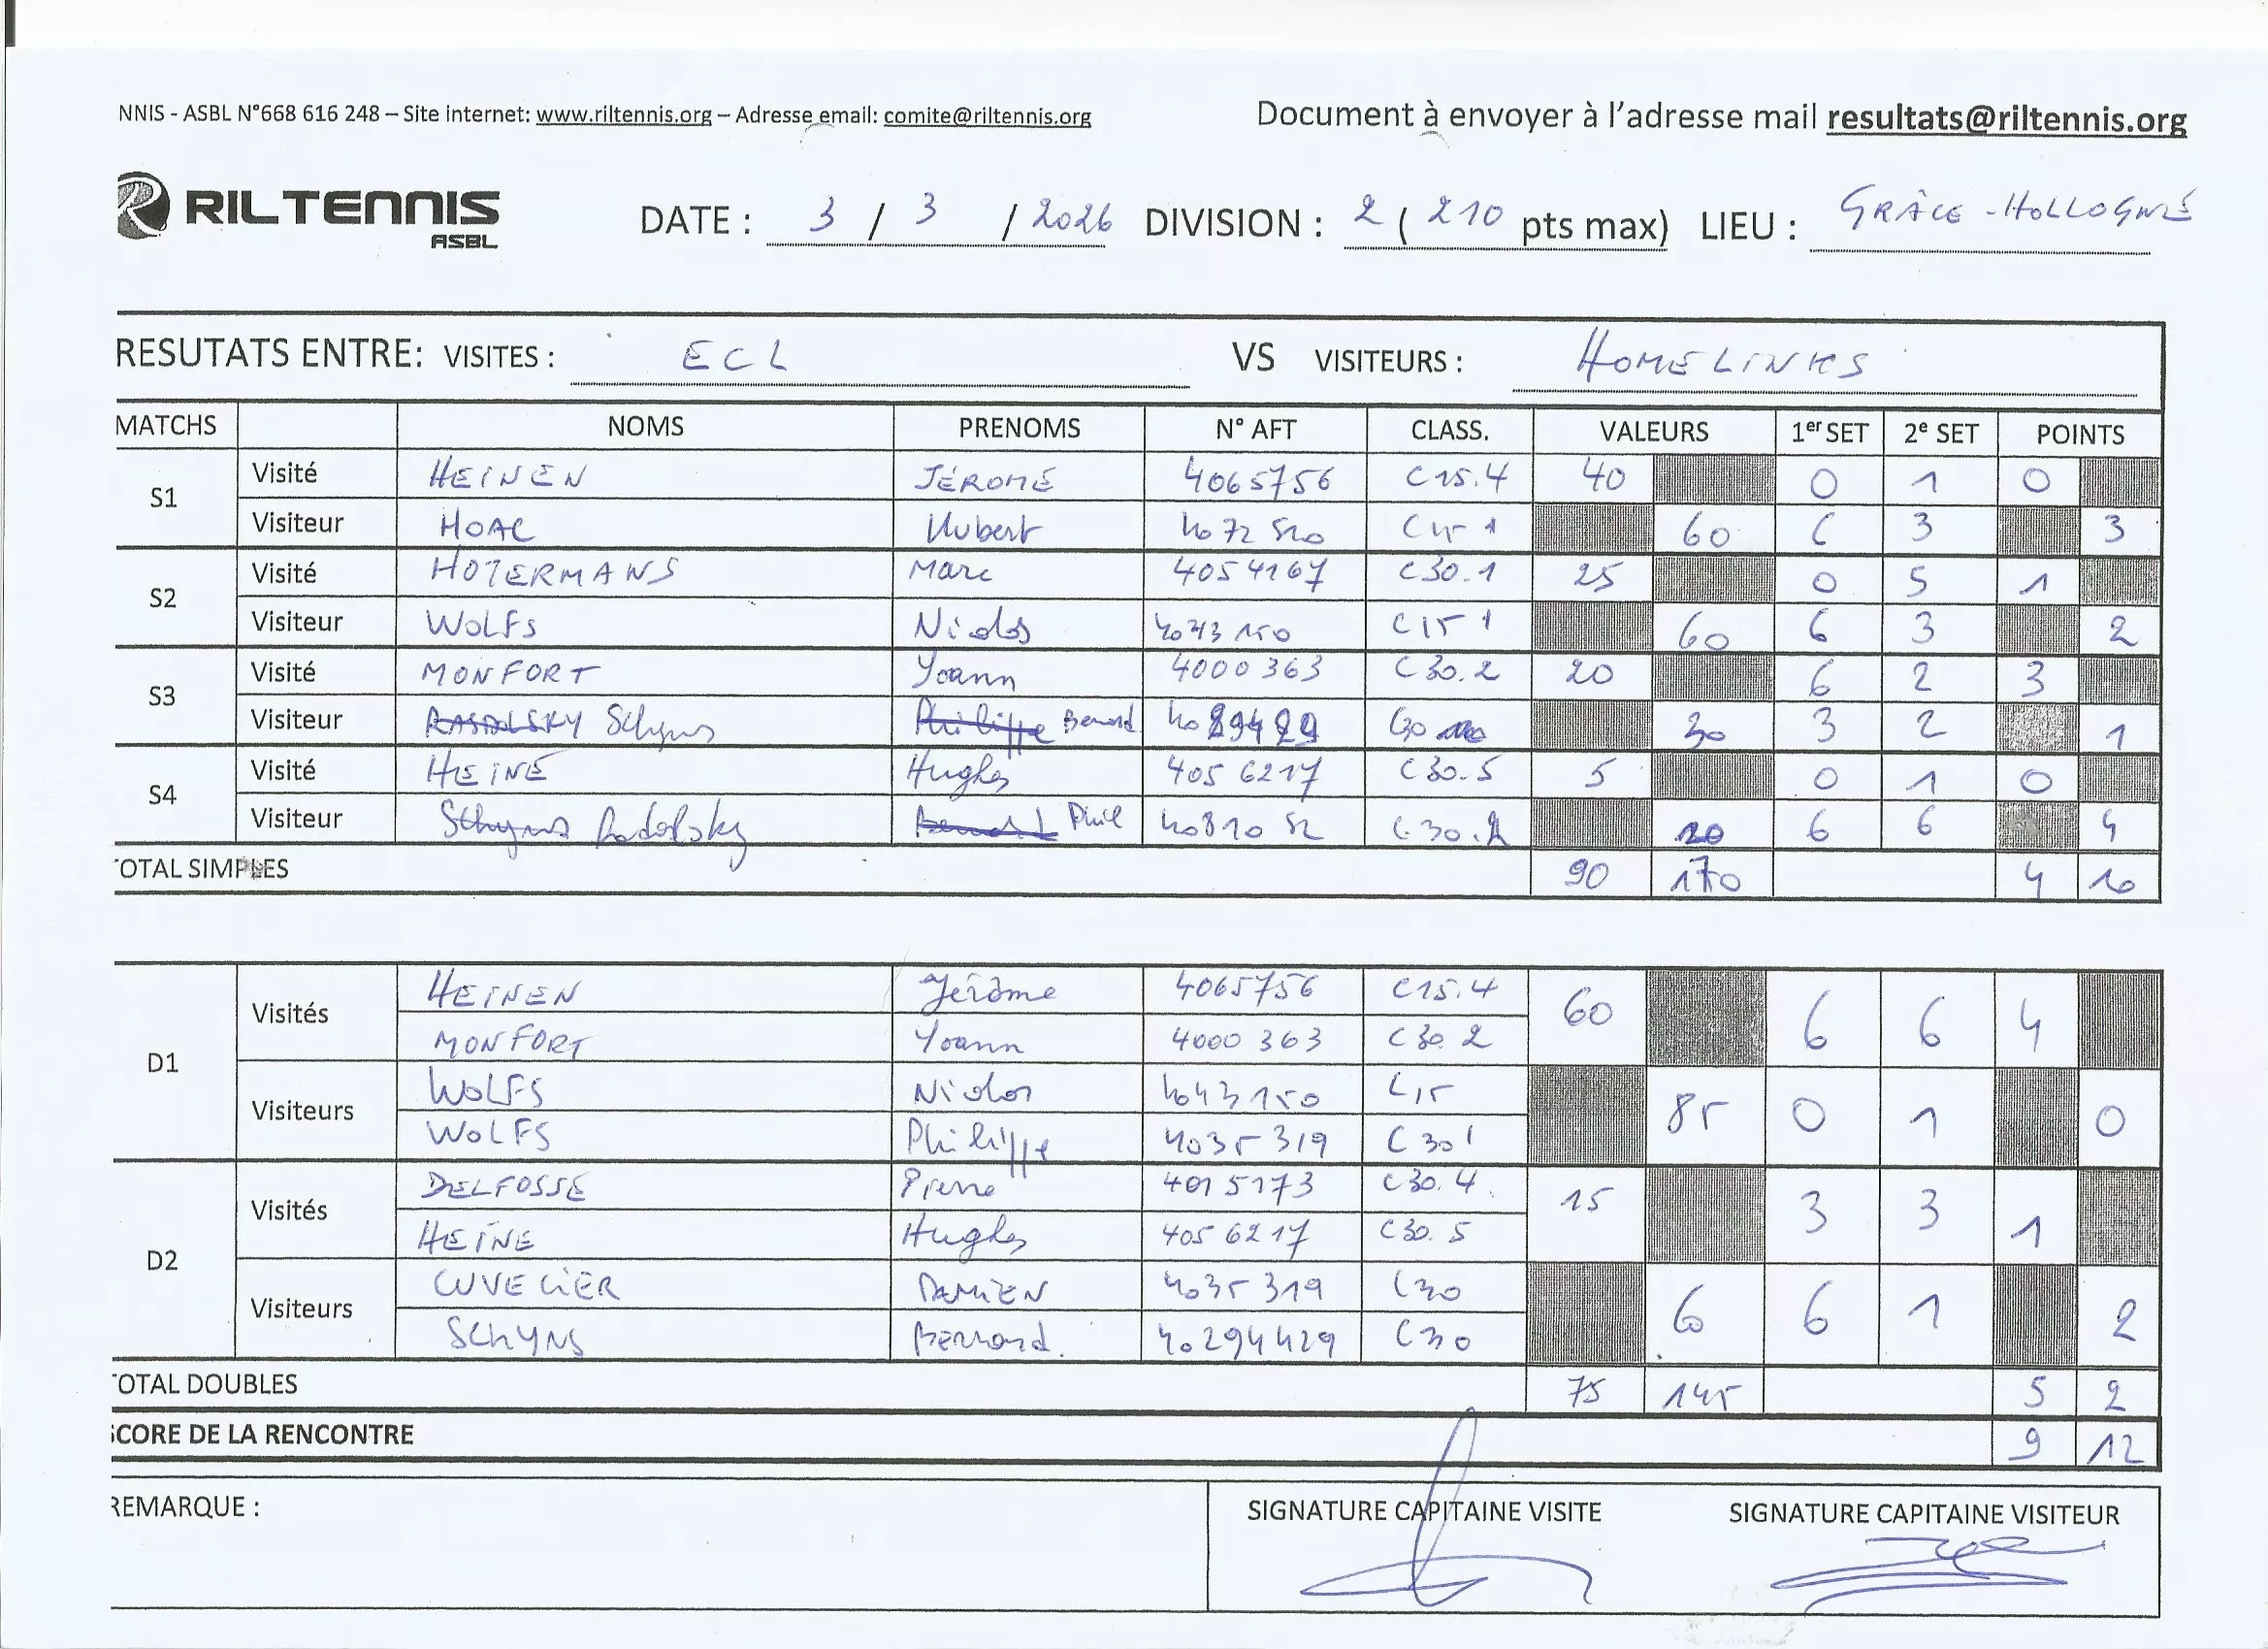 NNIS - ASBL N°668 616 248 – Site internet: www.riltennis.org – Adresse email: comite@riltennis.org Document à envoyer à l'adresse mail resultats@riltennis.org
RILTENNIS ASBL DATE : 3 / 3 / 2026 DIVISION : 2 ( 210 pts max) LIEU : GRÂCE-HOLLOGNE
RESUTATS ENTRE: VISITES : ECL VS VISITEURS : HOMELINKS
MATCHS NOMS PRENOMS N° AFT CLASS. VALEURS 1er SET 2e SET POINTS
S1 Visité HEINEN JÉROME 4065756 C15.4 40 0 1 0
Visiteur HOAC Hubert 4072520 C15 1 60 6 3 3
S2 Visité HOTERMANS Marc 4054167 C30.1 25 0 5 1
Visiteur WOLFS Nicolas 4043150 C15 1 60 6 3 2
S3 Visité MONFORT Yoann 4000363 C30.2 20 6 2 3
Visiteur Schyns Bernard C30 30 3 2 1
S4 Visité HEINE Hughes 4056217 C30.5 5 0 1 0
Visiteur Schyns Radolsky Phil 4081052 C.30.2 20 6 6 4
TOTAL SIMPLES 90 170 4 10
D1 Visités HEINEN Jérôme 4065756 C15.4 60 6 6 4
MONFORT Yoann 4000363 C30.2
Visiteurs WOLFS Nicolas 4043150 C15 85 0 1 0
WOLFS Philippe 4035319 C30 1
D2 Visités DELFOSSE Pierre 4015173 C30.4. 15 3 3 1
HEINE Hughes 4056217 C30.5
Visiteurs CUVELIER DAMIEN 4035319 C30 60 6 1 2
SCHYNS Bernard. 40294429 C30
TOTAL DOUBLES 75 145 5 2
SCORE DE LA RENCONTRE 9 12
REMARQUE : SIGNATURE CAPITAINE VISITE SIGNATURE CAPITAINE VISITEUR